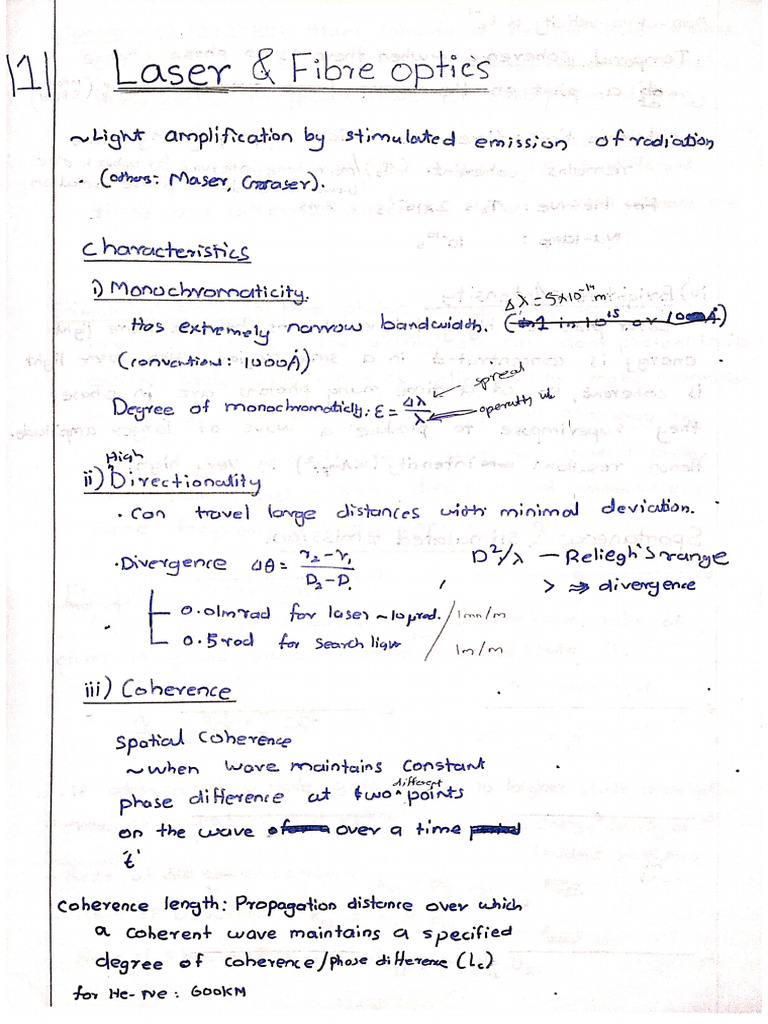 |1| Laser & Fibre optics
~ Light amplification by stimulated emission of radiation
. (others: Maser, Graser).
Characteristics
i) Monochromaticity.
Δλ = 5×10⁻¹⁴ m
Has extremely narrow bandwidth.
(convention: 1000Å)
Degree of monochromaticity: ε = Δλ/λ
spread
ii) High Directionality
. Can travel large distances with minimal deviation.
. Divergence Δθ = (r₂-r₁)/(D₂-D₁) D²/λ — Reliegh's range
> ⇒ divergence
0.01mrad for laser ~10μrad. / 1mm/m
0.5rad for search light / 1m/m
iii) Coherence
Spatial Coherence
~ when wave maintains constant
phase difference at two different points
on the wave over a time
't'
Coherence length: Propagation distance over which
a coherent wave maintains a specified
degree of coherence/phase difference (Lc)
for He-Ne: 600KM